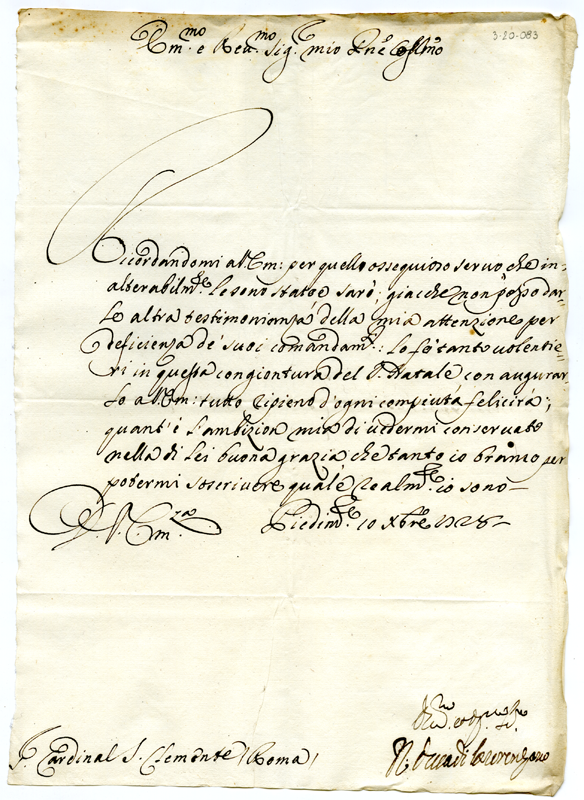 Em.mo e Reu.mo Sig.r mio P.ne Coll.mo
3-20-083
Riccordandomi a V. Em: per quello ossequioso seruo, che in-
alterabilm.te le sono stato e sarò; giacche non posso dar-
le altra testimonianza della mia attenzione per
deficienza de' suoi comandam.ti: Lo fò tanto uolentie-
ri in questa congiontura del S. Natale con augurar-
lo a V. Em: tutto ripieno d'ogni compiuta felicità;
quant'è l'ambizion mia di uedermi conseruato
nella di Lei buona grazia che tanto io bramo per
potermi soscriuere quale realm.te io sono
D. V. Em.za Piedim.te 10 Xbre 1728
S. Cardinal S. Clemente (Roma)
Il Duca di Laurenzano